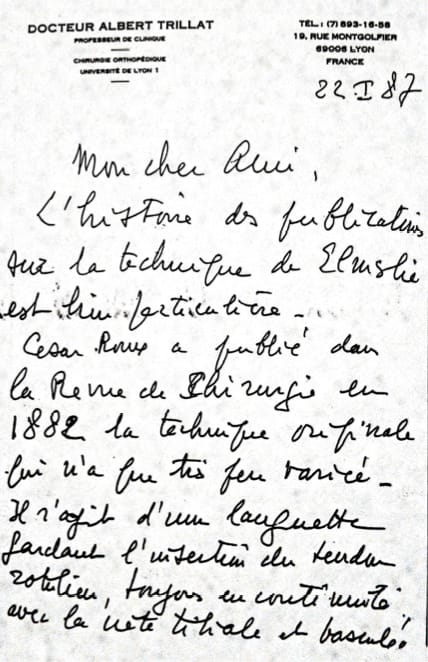 DOCTEUR ALBERT TRILLAT
PROFESSEUR DE CLINIQUE
CHIRURGIE ORTHOPÉDIQUE
UNIVERSITÉ DE LYON 1
TÉL.: (7) 893-16-58
19, RUE MONTGOLFIER
69006 LYON
FRANCE
22 I 87
Mon cher Ami,
L'histoire des publications
sur la technique de Elmslie
est bien particulière -
Cesar Roux a publié dans
la Revue de Chirurgie en
1882 la technique originale
qui n'a que très peu varié -
Il s'agit d'une languette
gardant l'insertion du tendon
rotulien, toujours en continuité
avec la crête tibiale et basculée